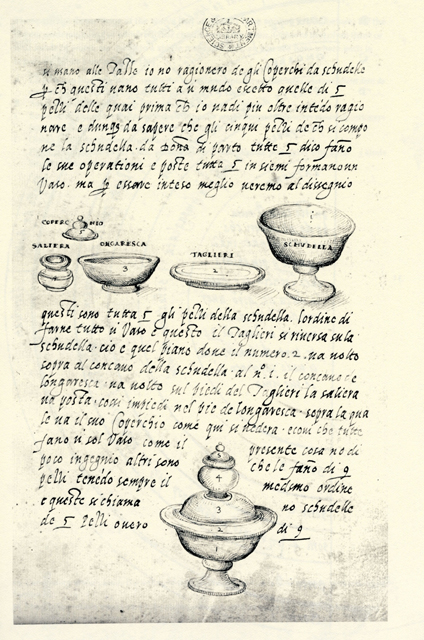 si mano alle Tasse io nõ ragionero de gli Coperchi da schudelle
questi uano tutti a ũ mudo exetto quelle di 5
pezzi delle quai prima io uadi piu oltre intẽdo ragio
nare e da sapere che gli cinqui pezzi si compo
ne la schudella da Dõna di parto tutte 5 dico fano
le sue operationi e poste tutta 5 in siemi formano un
Vaso. ma essare inteso meglio ueremo al dissegnio
COPERCHIO
SALIERA
ONGARESCA
3
TAGLIERI
2
1
SCHUDELLA
questi sono tutta 5 gli pezzi della schudella. l'ordine di
farne tutto ũ Vaso e questo il Taglieri si riuersa su la
schudella. cio e quel piano doue il numero. 2. ua uolto
sopra al concauo della schudella al nº. 1. il concauo de
longaresca ua uolto sul piedi del Taglieri la saliera
ua posta cosi impiedi nel pie de longaresca. sopra la qua
le ua il suo Coperchio come qui si uedera. ecoui che tutte
fano ũ sol Vaso come il presente cosa nõ di
poco ingegnio altri sono che le fano di 9
pezzi tenẽdo sempre il medesmo ordine
e queste si chiama no schudelle
de 5 Pezzi ouero di 9
4
3
2
1